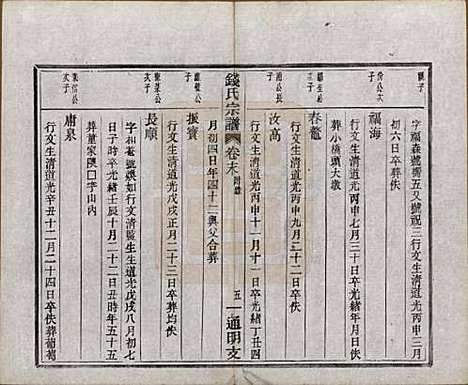 字福森號齊五又號硯三行文生清道光丙申三月
初六日卒葬佚
福海
行文生清道光丙申七月三十日卒光緒年月日佚
葬小橋頭大墩
春鰲
行文生清道光丙申九月二十二日卒葬佚
汝高
行文生清道光丙申十一月十一日卒光緒丁丑四
月初四日年四十二與父合葬
錢氏宗譜
卷末
附錄
五
通明支
振寶
行文生清道光戊戌正月二十三日卒葬均佚
長順
字和號煥如行文清監生生道光戊戌八月初七
日子時卒光緒壬辰十月二十二日丑時年五十五
葬董家隩口字山內
庸泉
行文生清道光辛丑十一月二十四日卒佚葬葡萄